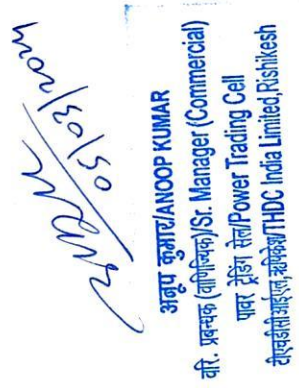 अनूप कुमार/ANOOP KUMAR
वरि. प्रबन्धक (वाणिज्यिक)/Sr. Manager (Commercial)
पावर ट्रेडिंग सेल/Power Trading Cell
टीएचडीसी आईएल, ऋषिकेश/THDC India Limited,Rishikesh